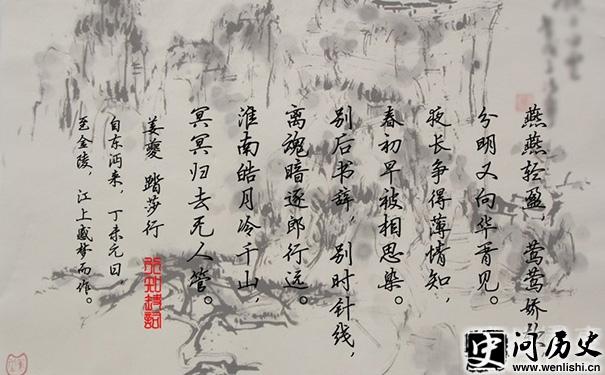 燕燕轻盈，莺莺娇
分明又向华胥见。
夜长争得薄情知，
春初早被相思染。
别后书辞，别时针线，
离魂暗逐郎行远。
淮南皓月冷千山，
冥冥归去无人管。
姜夔 踏莎行
自东沔来，丁未元日，
至金陵，江上感梦而作。
史
问历史
www.wenlishi.cn